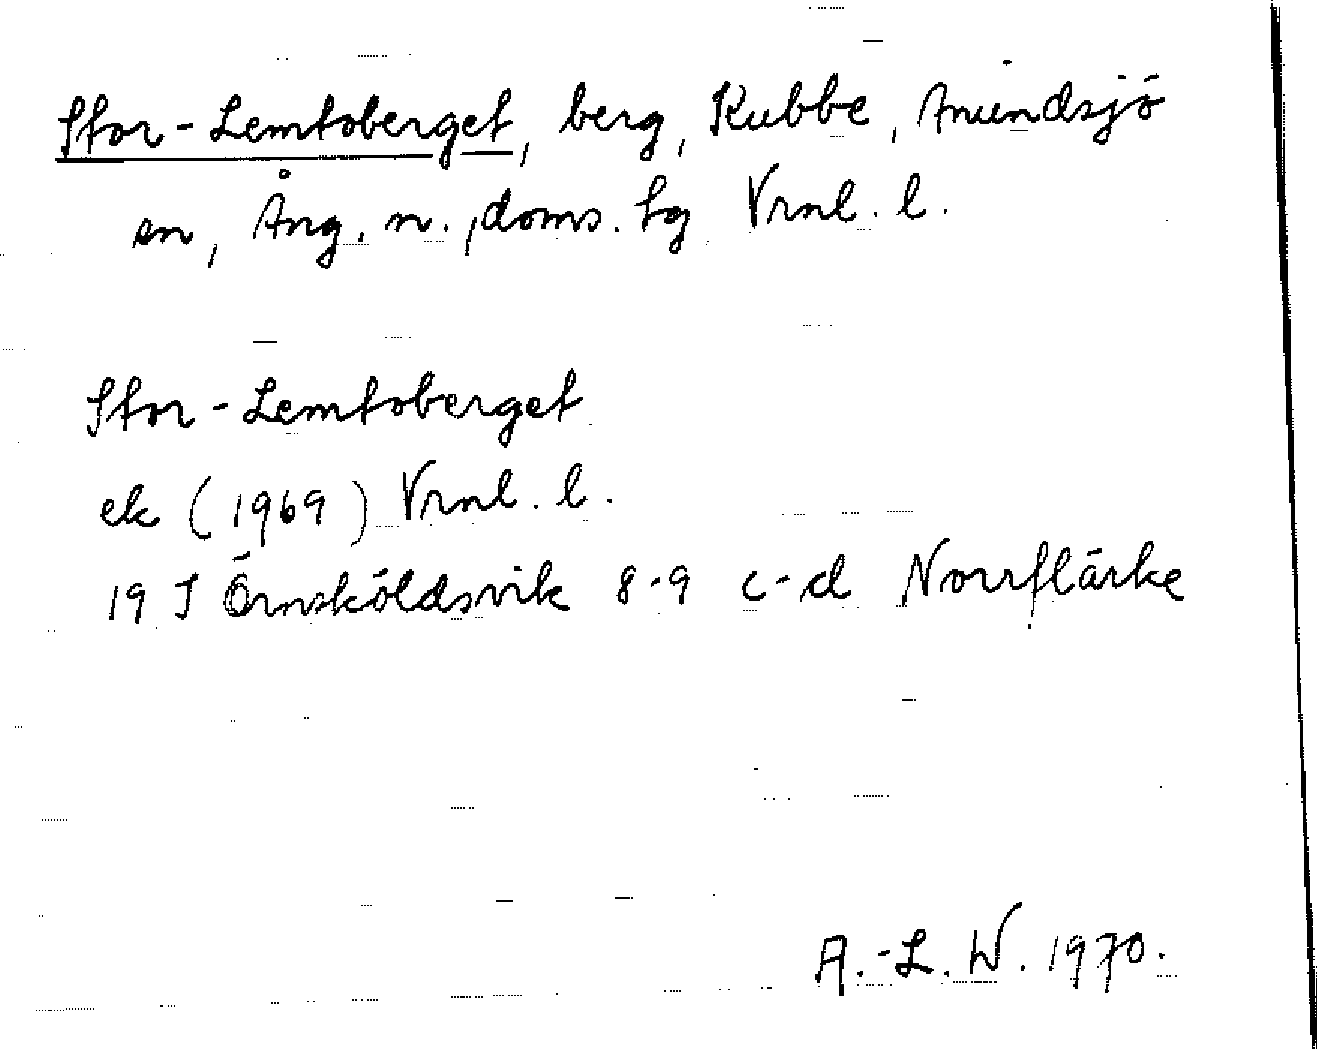 Stor-Lemtoberget, berg, Kubbe, Anundsjö
sn, Ång. n., doms. hg Vrnl. l.
Stor-Lemtoberget
ek (1969) Vrnl. l.
19 J Örnsköldsvik 8-9 c-d Norrflärke
A.-L. W. 1970.